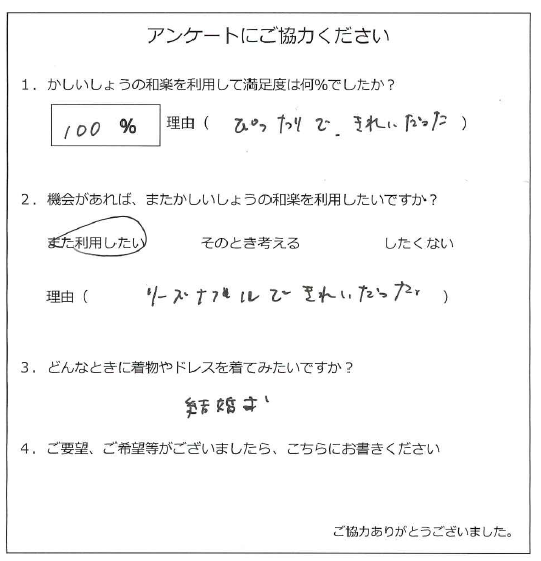 アンケートにご協力ください
1．かしいしょうの和楽を利用して満足度は何%でしたか？
100 % 理由（ ぴったりで、きれいだった ）
2．機会があれば、またかしいしょうの和楽を利用したいですか？
また利用したい そのとき考える したくない
理由（ リーズナブルできれいだった。 ）
3．どんなときに着物やドレスを着てみたいですか？
結婚式
4．ご要望、ご希望等がございましたら、こちらにお書きください
ご協力ありがとうございました。